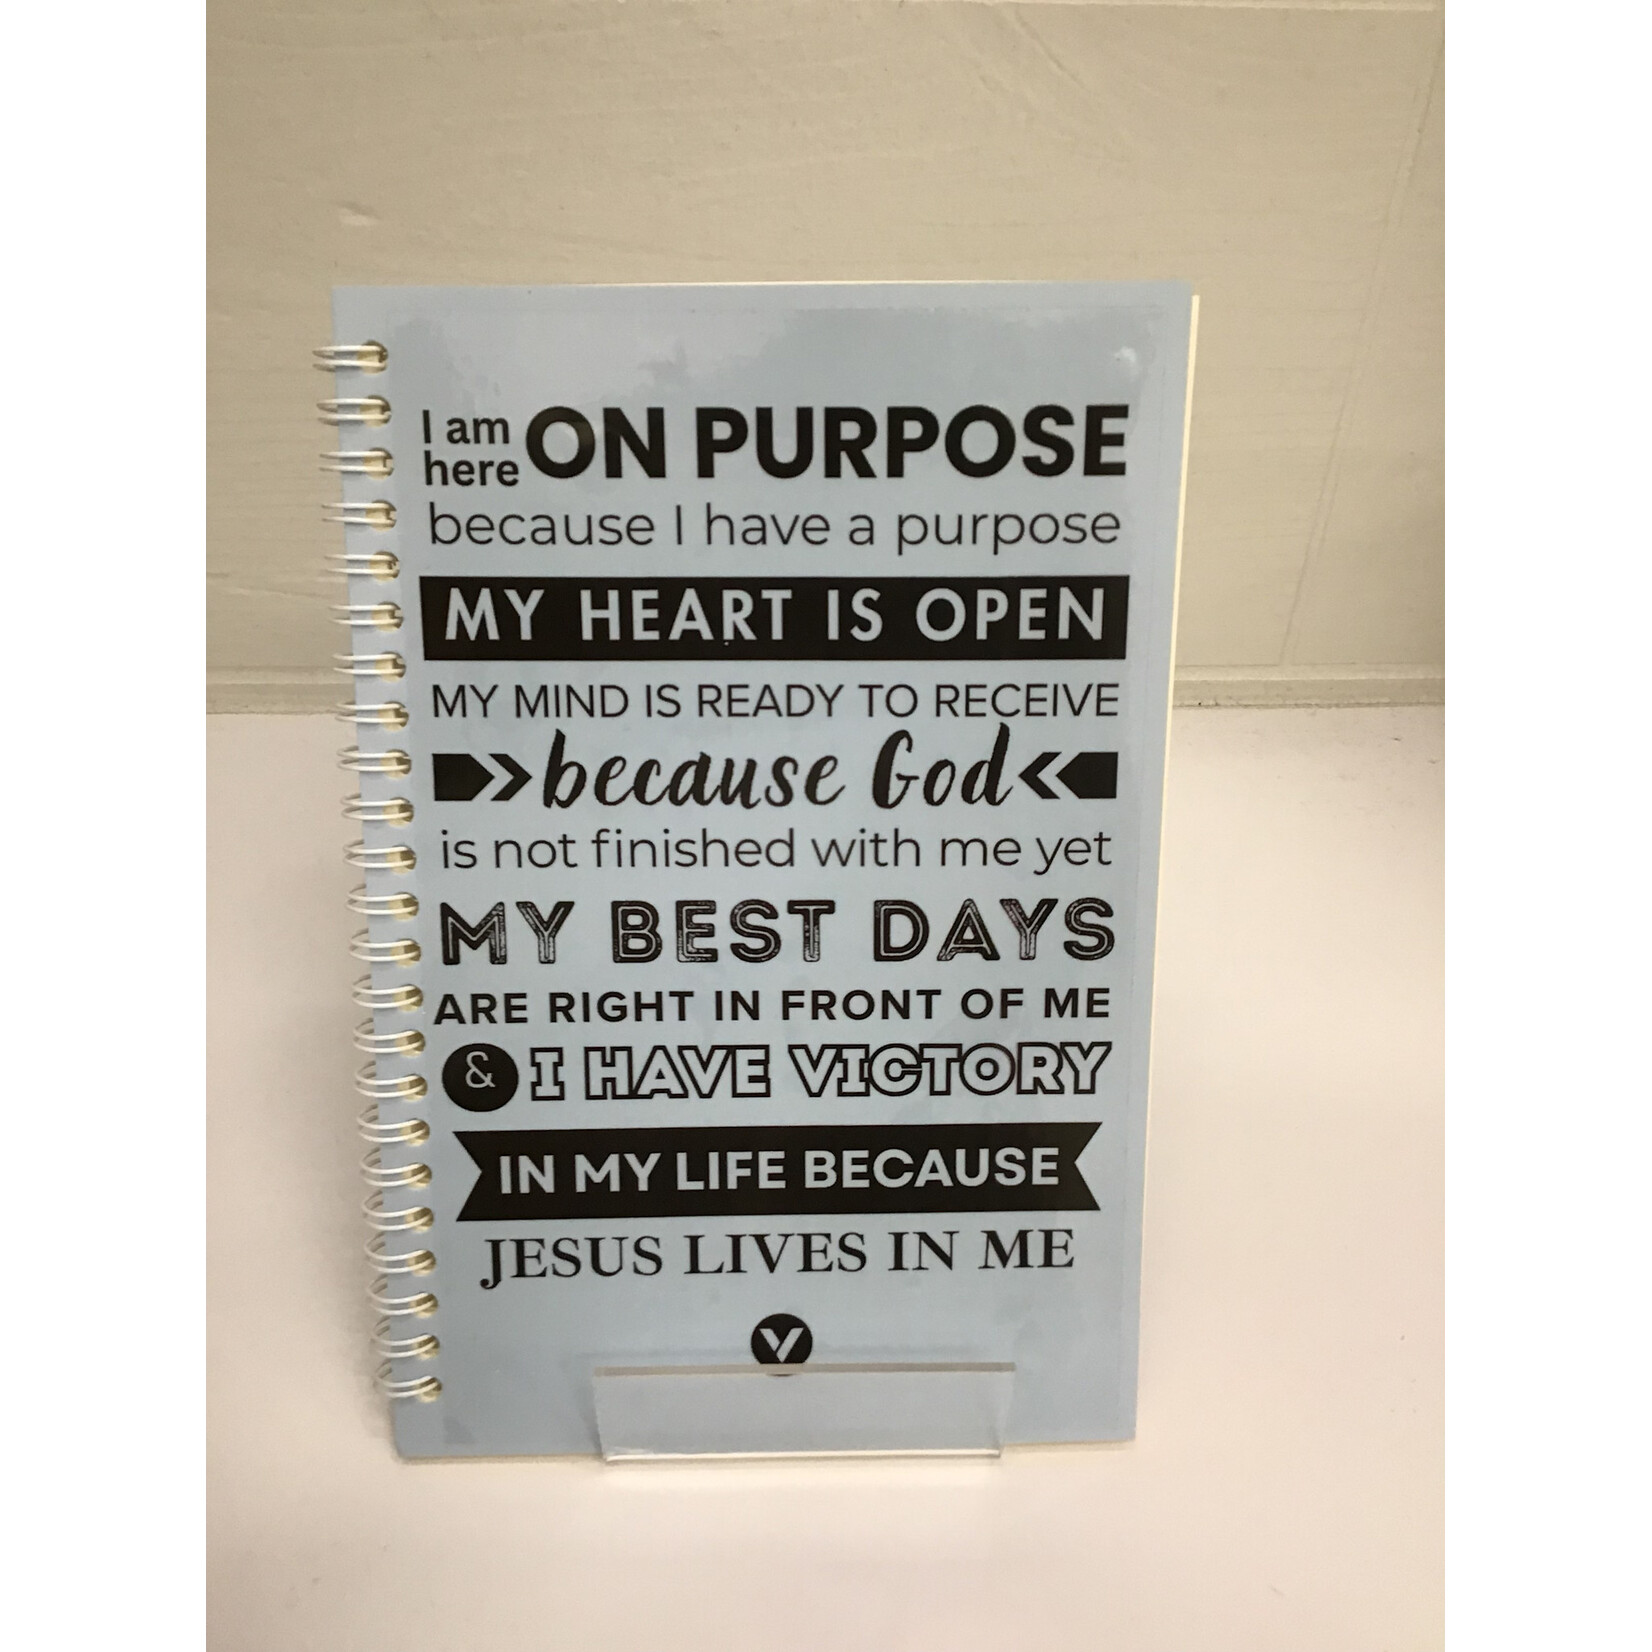 I am
here ON PURPOSE
because I have a purpose
MY HEART IS OPEN
MY MIND IS READY TO RECEIVE
because God
is not finished with me yet
MY BEST DAYS
ARE RIGHT IN FRONT OF ME
& I HAVE VICTORY
IN MY LIFE BECAUSE
JESUS LIVES IN ME
V